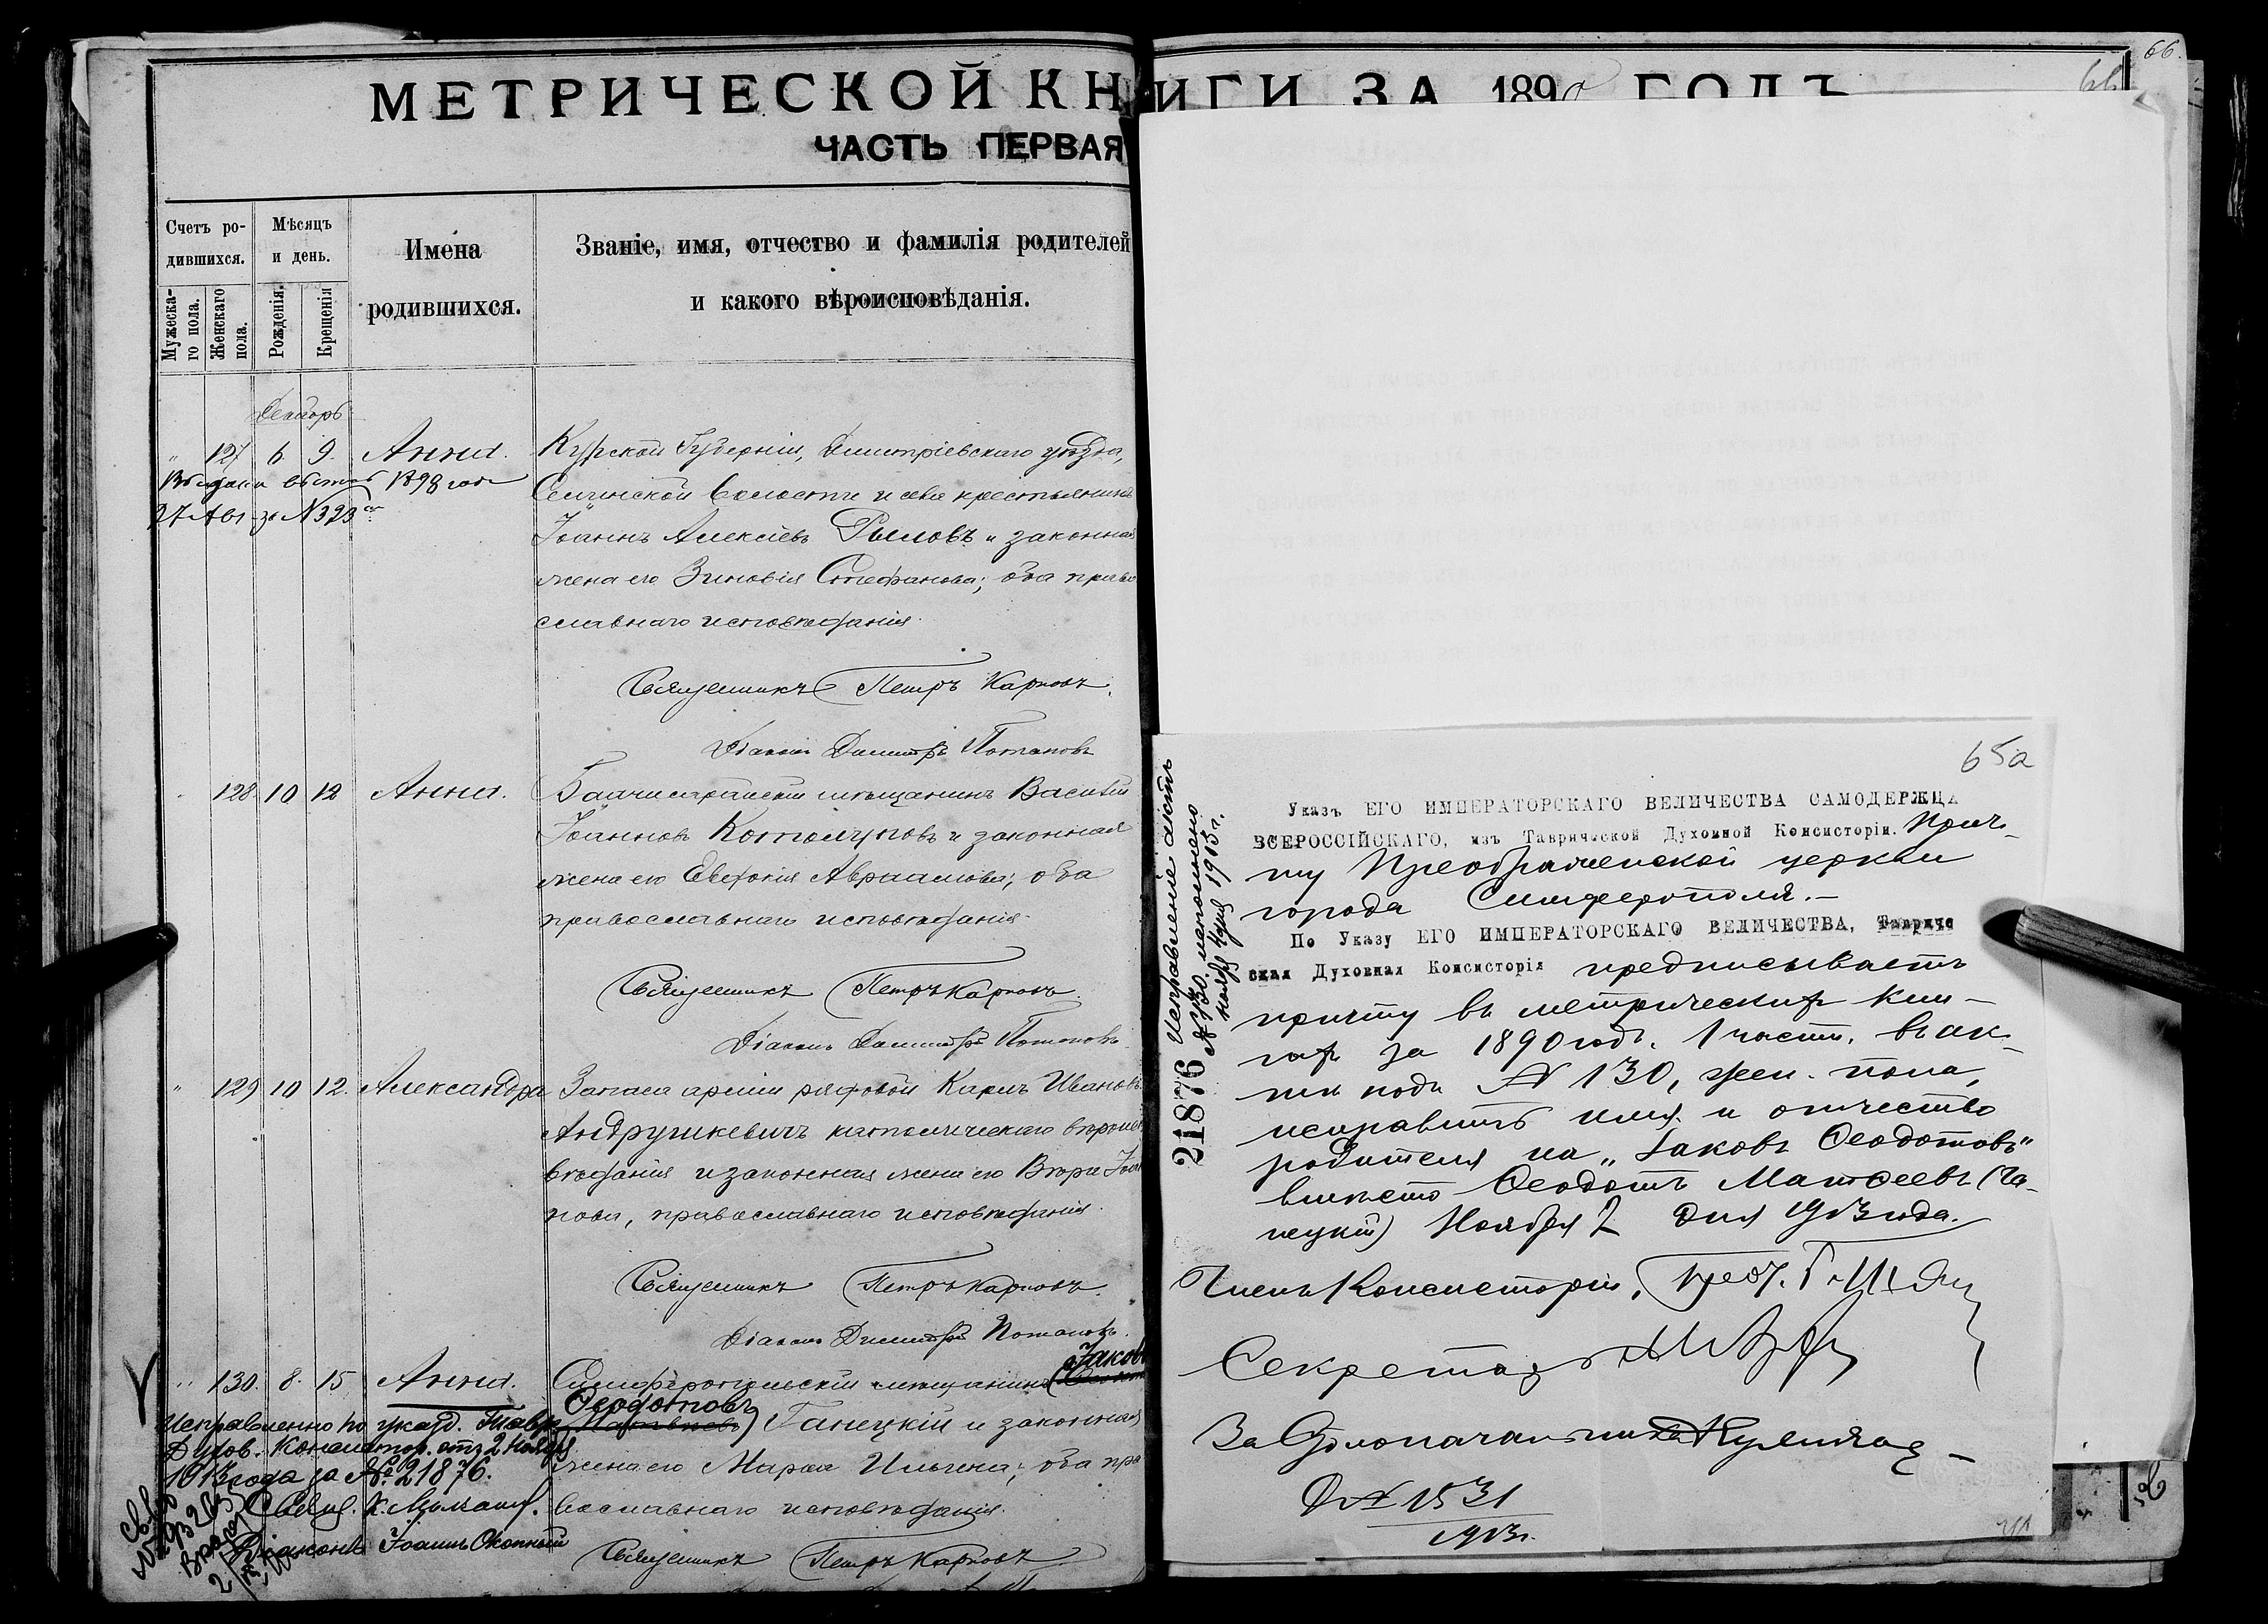 МЕТРИЧЕСКОЙ КНИГИ ЗА 1890 ГОДЪ
ЧАСТЬ ПЕРВАЯ
66.
Счетъ ро-
дившихся.
Мужеска-
го пола.
Женскаго
пола.
Мѣсяцъ
и день.
Рожденія.
Крещенія
Имена
родившихся.
Званіе, имя, отчество и фамилія родителей
и какого вѣроисповѣданія.
Декабрь
" 127 6. 9. Анна. Курской Губерніи, Димитріевскаго уѣзда,
1898 года волости и села крестьянинъ
27 Авг за N 323
Іоаннъ Алексіевъ Рыловъ и законная
жена его Зиновія Стефанова; оба право
славнаго исповѣданія.
Священникъ Петръ Карповъ.
Діаконъ Димитрій Потаповъ
128 10 12 Анна. Бахчисарайскій мѣщанинъ Василій
Іоанновъ и законная
жена его Евдокія Авраамова; оба
православнаго исповѣданія.
Священникъ Петръ Карповъ.
Діаконъ Димитрій Потаповъ.
" 129 10 12. Александра Запаса арміи рядовой Карлъ Ивановъ
Андрушкевичъ католическаго вѣроиспо
вѣданія и законная жена его Вѣра Іоан
нова, православнаго исповѣданія.
Священникъ Петръ Карповъ.
Діаконъ Димитрій Потаповъ.
" 130. 8. 15 Анна. Симферопольскій мѣщанинъ (Іаковъ
Ѳеодотовъ
Матвѣевъ) Ганецкій и законная
жена его Марѳа Ильина; оба пра
вославнаго исповѣданія.
Священникъ Петръ Карповъ
Исправленно по указ. Тавр.
Духов. Консистор. отъ 2 Ноября
1913 года за № 21876.
Свящ.
Діаконъ Іоаннъ Оконный
65а
Указъ ЕГО ИМПЕРАТОРСКАГО ВЕЛИЧЕСТВА САМОДЕРЖЦА
ВСЕРОССІЙСКАГО, изъ Таврической Духовной Консисторіи. Прич-
ту Преображенской церкви
города Симферополя.-
По Указу ЕГО ИМПЕРАТОРСКАГО ВЕЛИЧЕСТВА, Тавриче
ская Духовная Консисторія предписываетъ
причту въ метрическихъ кни-
гахъ за 1890 годъ. 1 част. въ ак-
тѣ подъ N 130, жен. пола,
исправить имя и отчество
родителя на „Іаковъ Ѳеодотовъ"
вмѣсто Ѳеодотъ Матѳеевъ (Га-
нецкій) Ноября 2 дня 1913 года.
Членъ Консисторіи,
Секретарь
За Столоначальника
N 1531
1913 г.
21876
Исправленіе актъ
№ 130. исполнено
1913 г.